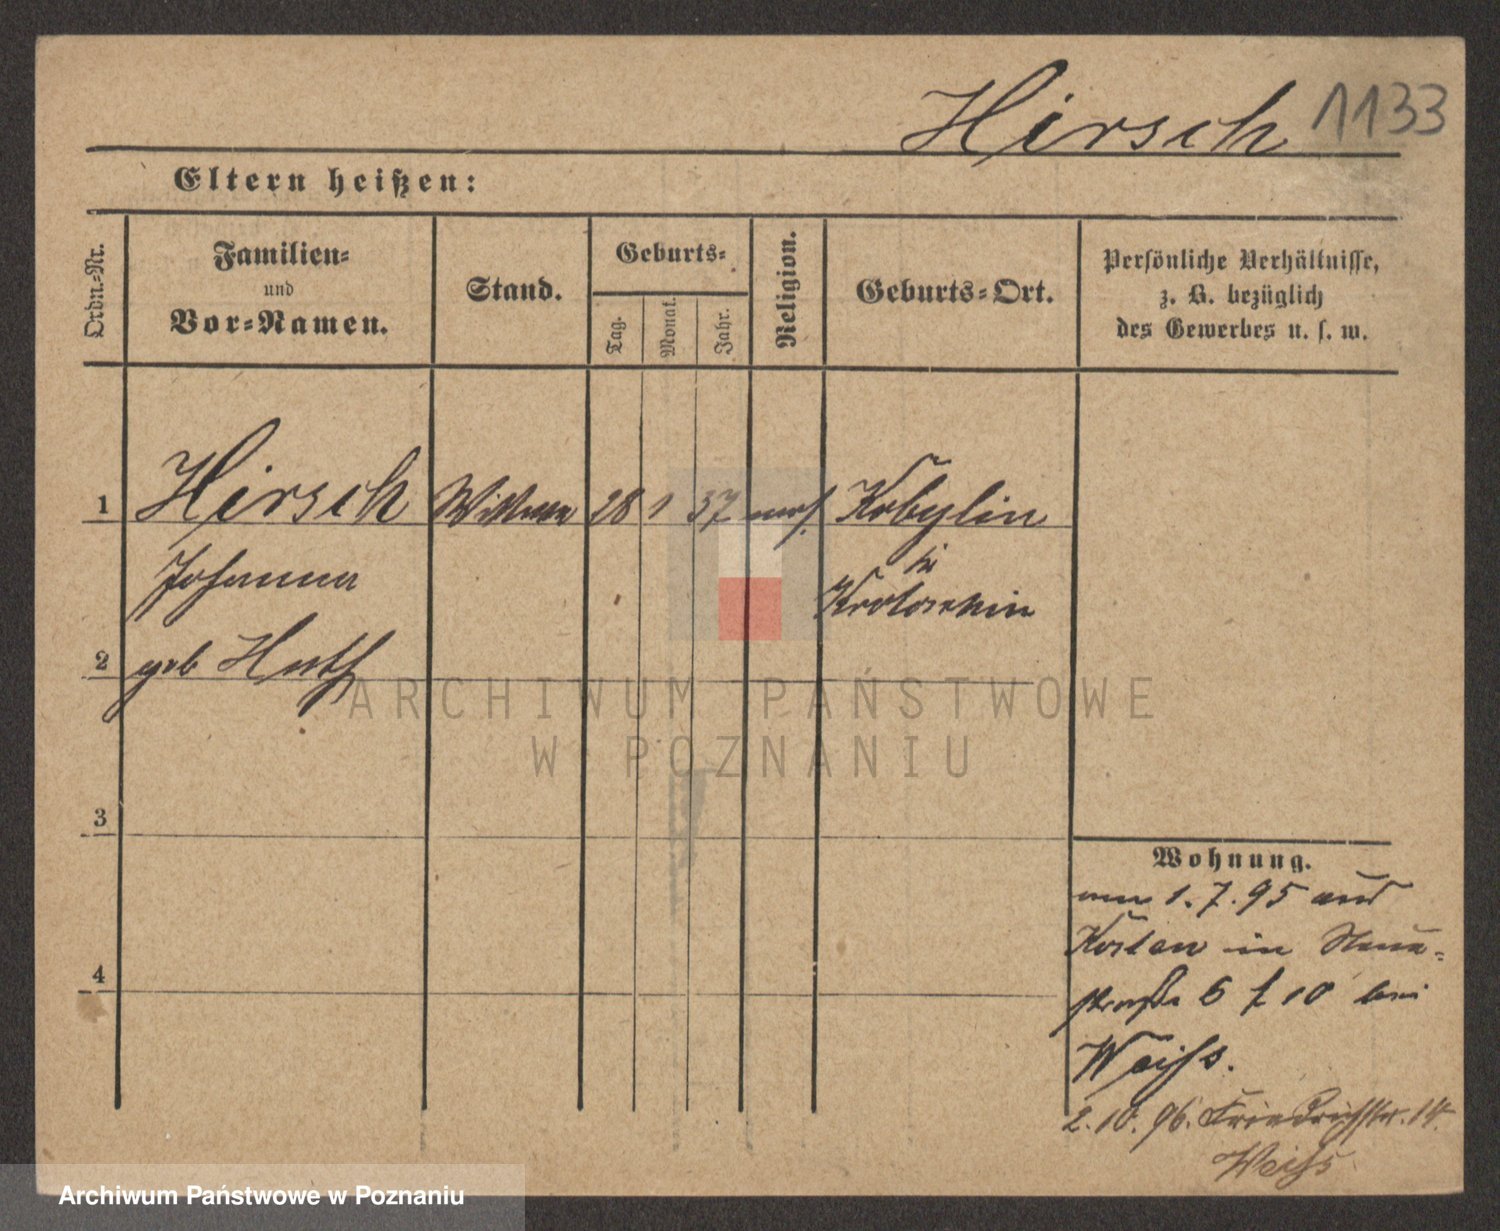 Hirsch 1133
Eltern heißen:
Ordn.-Nr.
Familien-
und
Vor-Namen.
Stand.
Geburts-
Tag.
Monat.
Jahr.
Religion.
Geburts-Ort.
Persönliche Verhältnisse,
z. B. bezüglich
des Gewerbes u. s. w.
1 Hirsch Wittwe 28 1 37 mos. Kobylin
Johanna
Krotoschin
2 geb Huth
3
4
Wohnung.
1. 7. 95 aus
Kosten in
straße 6 10 bei
Weiss.
2. 10. 96. Friedrichstr. 14.
Weiss
ARCHIWUM PAŃSTWOWE
W POZNANIU
Archiwum Państwowe w Poznaniu